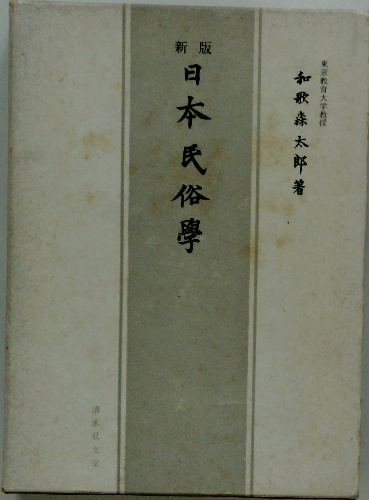 東京教育大学教授
和歌森太郎著
新版
日本民俗學
清水弘文堂